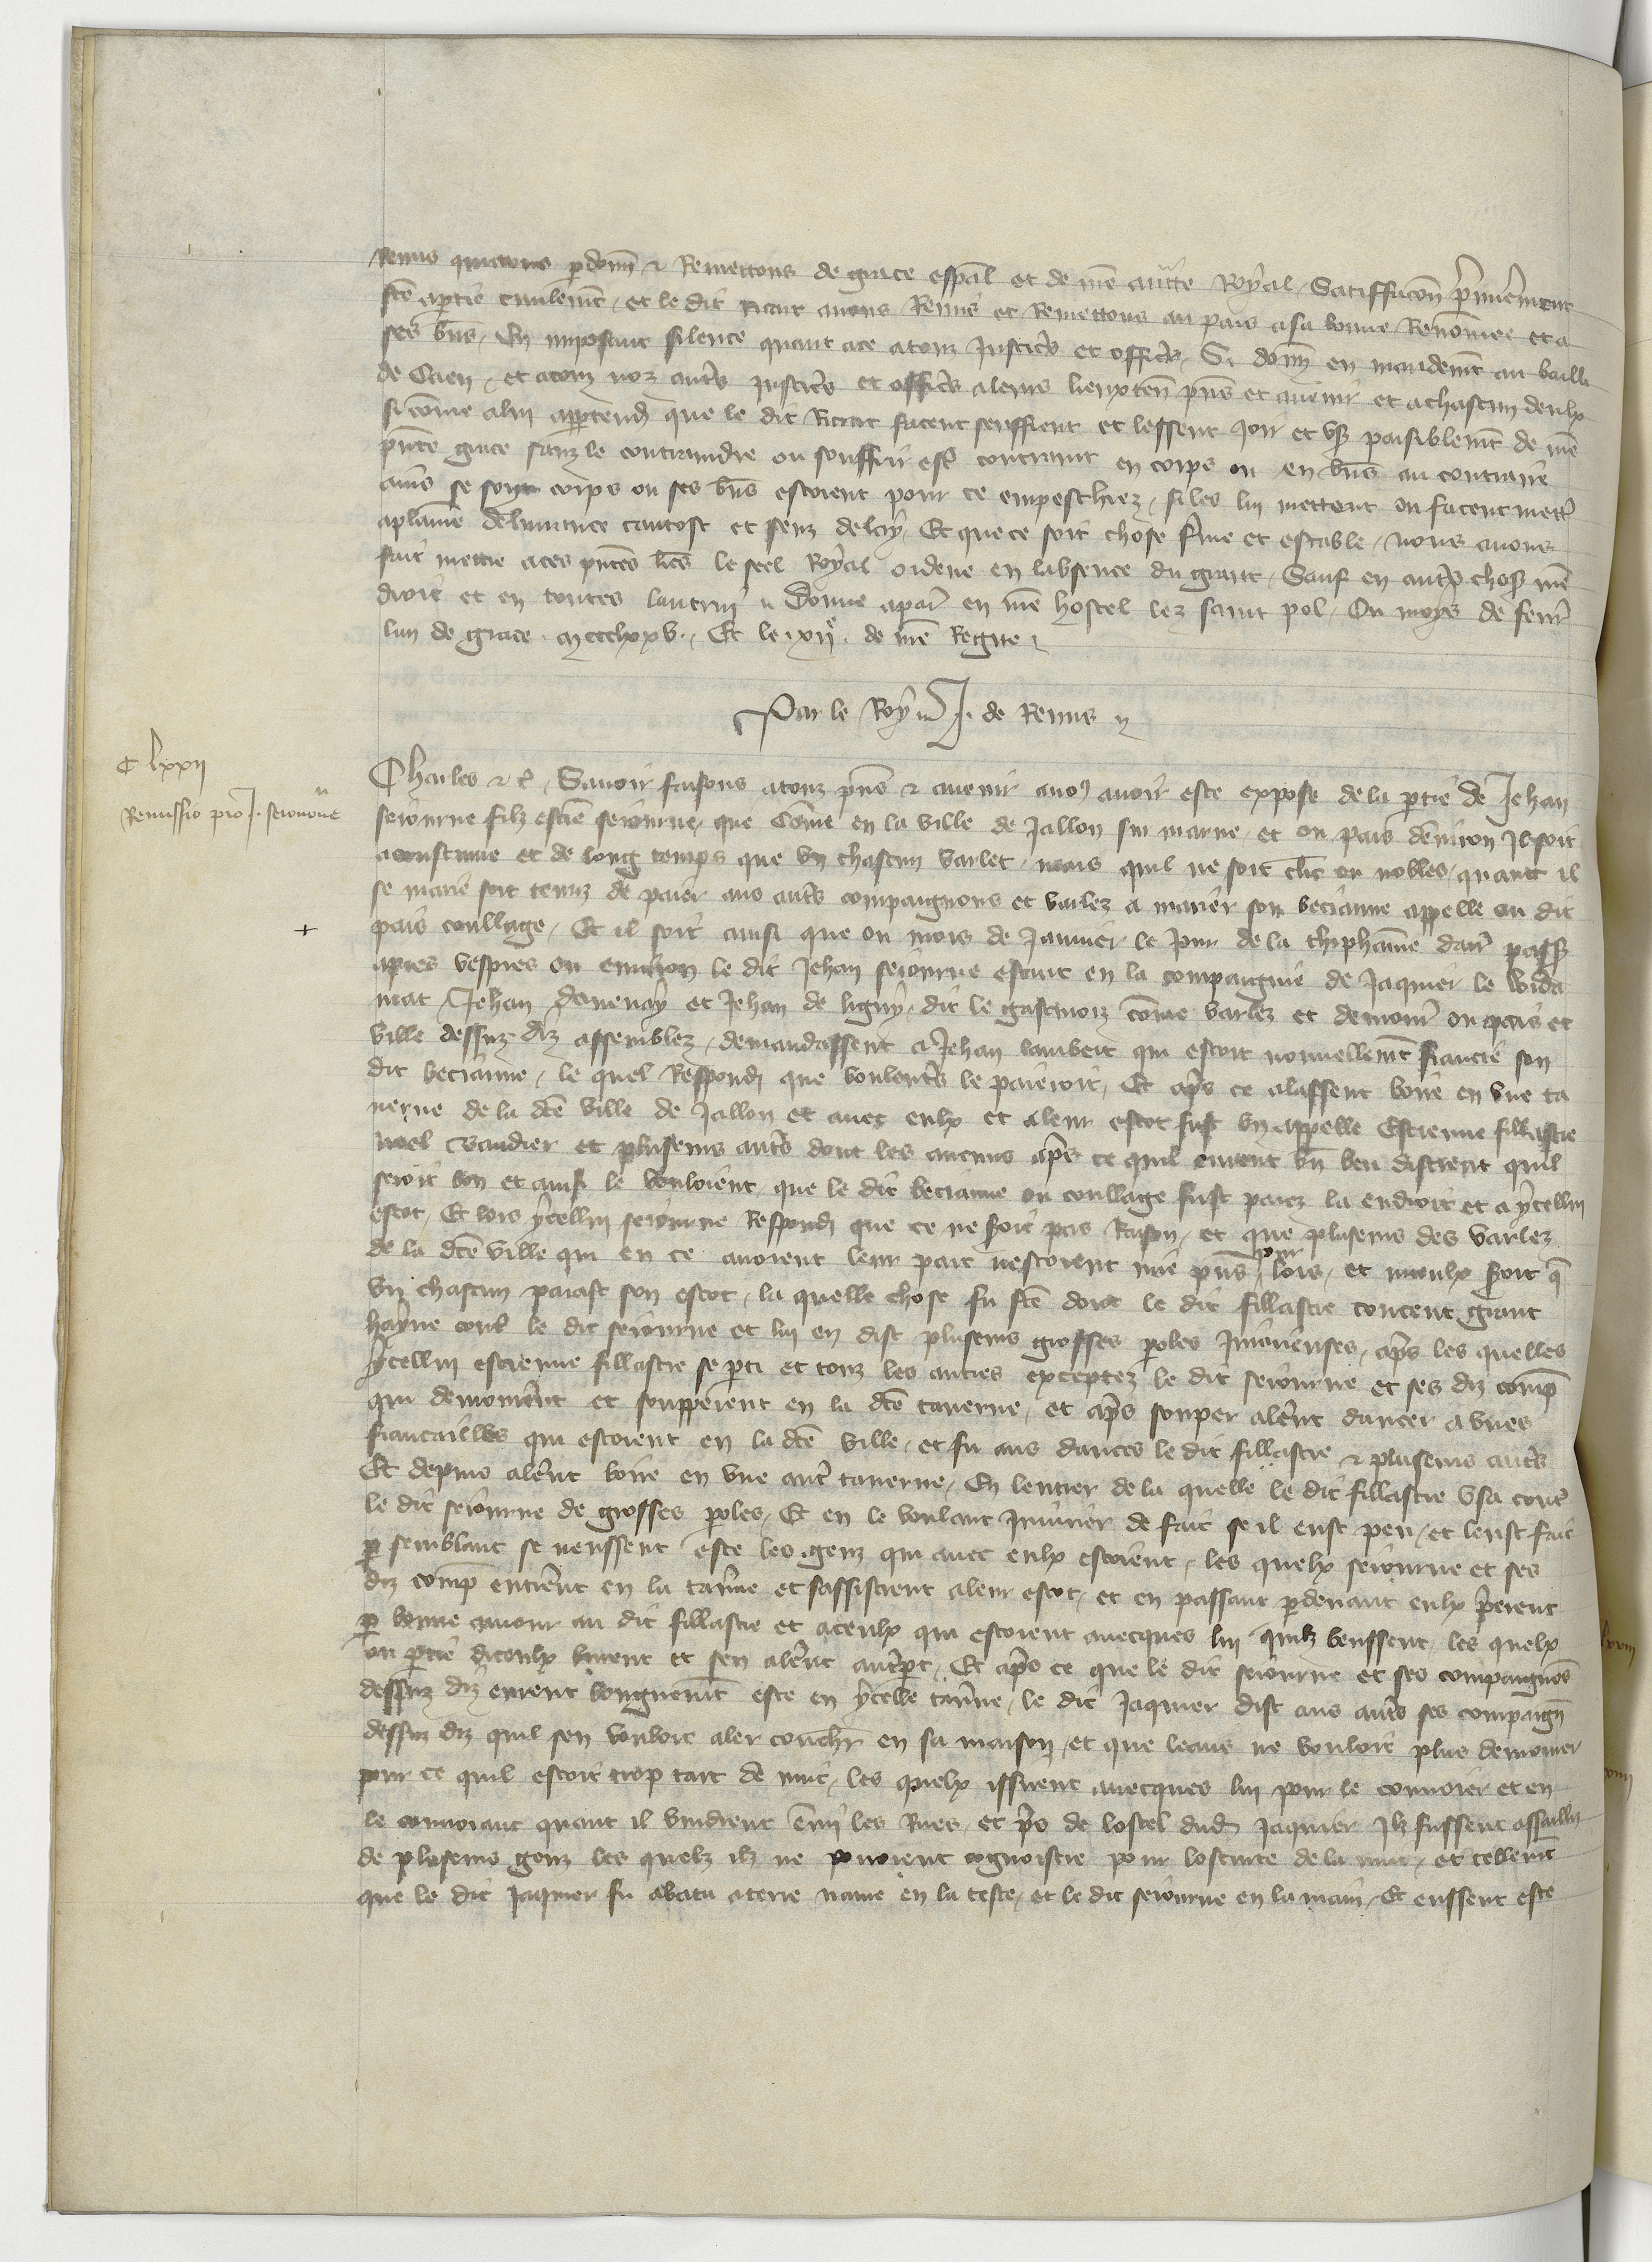 Remis quictons pdonn̄ & Remettons de grace esp̄al et de nr̄e auct̄te Royal, Satiffacōn p̄mierement
fc̄e aptie ciuilemēt, et le dit Ricart auons Remis et Remettons au pais asa bonne Renōmee et a
ses bn̄s, En imposant silence quant ace atouz Justicīs et officīs, Si donn̄ en mandemēt au bailli
de Caen, et atouz noz autr̄s justicīs et officīs aleurs lieuxten̄ pn̄s et auenir et achascun deulx
si cōme alui appartendr̄a que le dit Ricart facent seuffrent et lessent Joir et vs̄ paisiblemēt de nr̄e
pn̄te grace sanz le contraindre ou souffrir est̄ contraint en corps ou en bn̄s au contraire
aincs se son corps ou ses bn̄s estoient pour ce empeschiez, si les lui mettent ou facent mett̄
aplaine deliurance tantost et senz delay, Et que ce soit chose f̄me et estable, nous auons
fait mettre aces pn̄tes lr̄es le seel Royal ordene en labsence du grant, Sauf en autr̄s choses nr̄e
droit et en toutes lautrui Donne apar̄ en nr̄e hostel lez saint pol, Ou moys de feur̄
lan de grace mccclxxv., Et le xii<sup>e</sup> de nr̄e Regne
Par le Roy J. de Remis
C lxxii
Remissio pro J. seiourne
Charles &c̄, Sauoir faisons atouz pn̄s & auenir anoꝰ auoir este expose de la ptie de Jehan
seiourne filz estiēn seiourne, que Cōme en la ville de Jallon sur marne, et ou pais denuiron Il soit
acoustume et de long temps que vn chascun varlet, mais quil ne soit clic̄ ou nobles, quant il
se marie soit tenuz de paier aus autr̄s compaignons et varlez a marier son beciaune appelle ou dit
+
pais coullage, Et il soit ainsi que ou mois de Januier le jour de la thiphaine darr̄ passe
apres vespres ou enuiron le dit Jehan seiourne estant en la compaignie de Jaquier le vida
mat Jehan deuenay et Jehan de ligny, dit le gastinoiz cōme varlez et demour̄ ou pais et
ville dessuz diz assemblez, demandassent a Jehan lambert qui estoit nouuellemēt fiancie son
dit beciaune, le quel Respond̄ que voulent̄s le paieroit, Et apr̄s ce alassent boire en vne ta
uerne de la dc̄e ville de Jallon et auec eulx et aleur escot fust vn appelle Estienne fillastre
nuel vaudier et plusieurs autr̄s dont les aucuns apr̄s ce quil eurent bn̄ beu distrent quil
seroit bon et ainsi le vouloient, que le dit beciaune ou coullage fust paiez la endroit et a ycellui
escot, Et lors ycellui seiourne Respond̄ que ce ne s̄oit pas Raison, et que plusieurs des varlez
de la dc̄e ville qui en ce auoient leur part nestoient mie pn̄s pour lors, et mieulx s̄oit q̄
vn chascun paiast son escot, la quelle chose fu fc̄e dont le dit fillastre concent grant
hayne cont̄ le dit seiourne et lui en dist plusieurs grosses ꝑoles Iniurieuses, apr̄s les quelles
ycellui estienne fillastre se ꝑti et touz les autres exceptez le dit seiourne et ses diz comp̄
qui demour̄ent et soupperent en la dc̄e tauerne, et apr̄s souper aler̄ent dancer a vnes
fiancailles qui estoient en la dc̄e ville, et fu aus dances le dit fillastre & plusieurs autr̄s
Et depuis aler̄ent boire en vne autr̄ tauerne, En lentier de la quelle le dit fillastre vsa cont̄
le dit seiourne de grosses ꝑoles, Et en le voulant Iniurier de fait se il eust peu, et leust fait
ꝑ semblant se neussent este les genz qui auec eulx estoient, les quelx seiourne et ses
diz comp̄ entrer̄ent en la tau̅ne et sassistrent aleur escot, et en passant ꝑdeuant eulx p̄ierent
ꝑ bonne amour au dit fillastre et aceulx qui estoient auecques lui quilz beussent, les quelx
ou ꝑtie diceulx burent et sen aler̄ent autr̄eꝑt, Et apr̄s ce que le dit seiourne et ses compaignōs
dessuz diz eurent longuemēt este en ycelle tau̅ne, le dit Jaquier dist aus autr̄s ses compaign̄
dessuz diz quil sen vouloit aler couchr̄ en sa maison, et que leans ne vouloit plus demourer
pour ce quil estoit trop tart de nuit, les quelx issirent auecques lui pour le conuoier et en
le conuoiant quant il vindrent en̄my les Rues, et pr̄s de lostel dud̄ Jaquier Ilz fussent assailliz
de plusieurs genz les quelz ilz ne pouoient cognoistre pour loscurte de la nuit, et tellemēt
que le dit Jaquier fu abatu a terre naure en la teste, et le dit seiourne en la main, Et eussent este